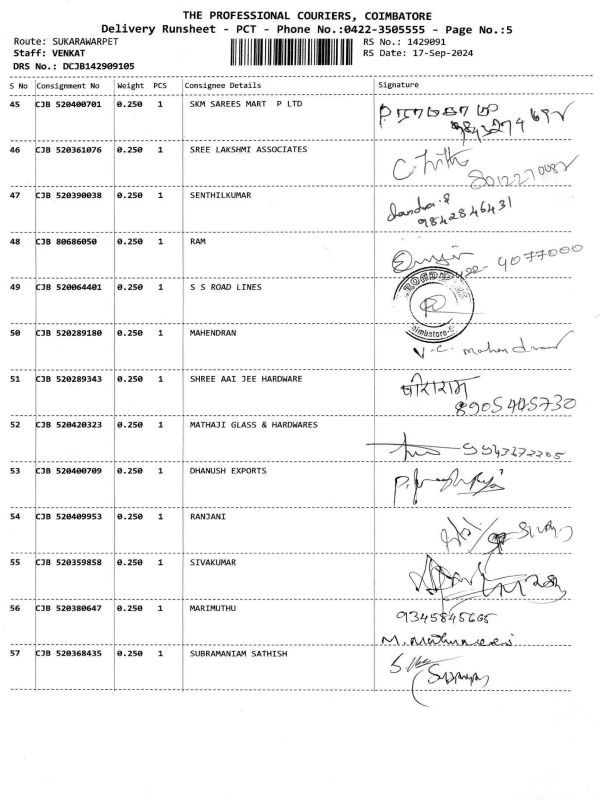 THE PROFESSIONAL COURIERS, COIMBATORE
Delivery Runsheet - PCT - Phone No.:0422-3505555 - Page No.:5
Route: SUKARAWARPET RS No.: 1429091
Staff: VENKAT RS Date: 17-Sep-2024
DRS No.: DCJB142909105
S No Consignment No Weight PCS Consignee Details Signature
45 CJB 520400701 0.250 1 SKM SAREES MART P LTD
46 CJB 520361076 0.250 1 SREE LAKSHMI ASSOCIATES
47 CJB 520390038 0.250 1 SENTHILKUMAR
9842846431
48 CJB 80686050 0.250 1 RAM
4077000
49 CJB 520064401 0.250 1 S S ROAD LINES
50 CJB 520289180 0.250 1 MAHENDRAN
V.C. Mahendran
51 CJB 520289343 0.250 1 SHREE AAI JEE HARDWARE
8905405730
52 CJB 520420323 0.250 1 MATHAJI GLASS & HARDWARES
53 CJB 520400709 0.250 1 DHANUSH EXPORTS
54 CJB 520409953 0.250 1 RANJANI
55 CJB 520359858 0.250 1 SIVAKUMAR
56 CJB 520380647 0.250 1 MARIMUTHU
57 CJB 520368435 0.250 1 SUBRAMANIAM SATHISH